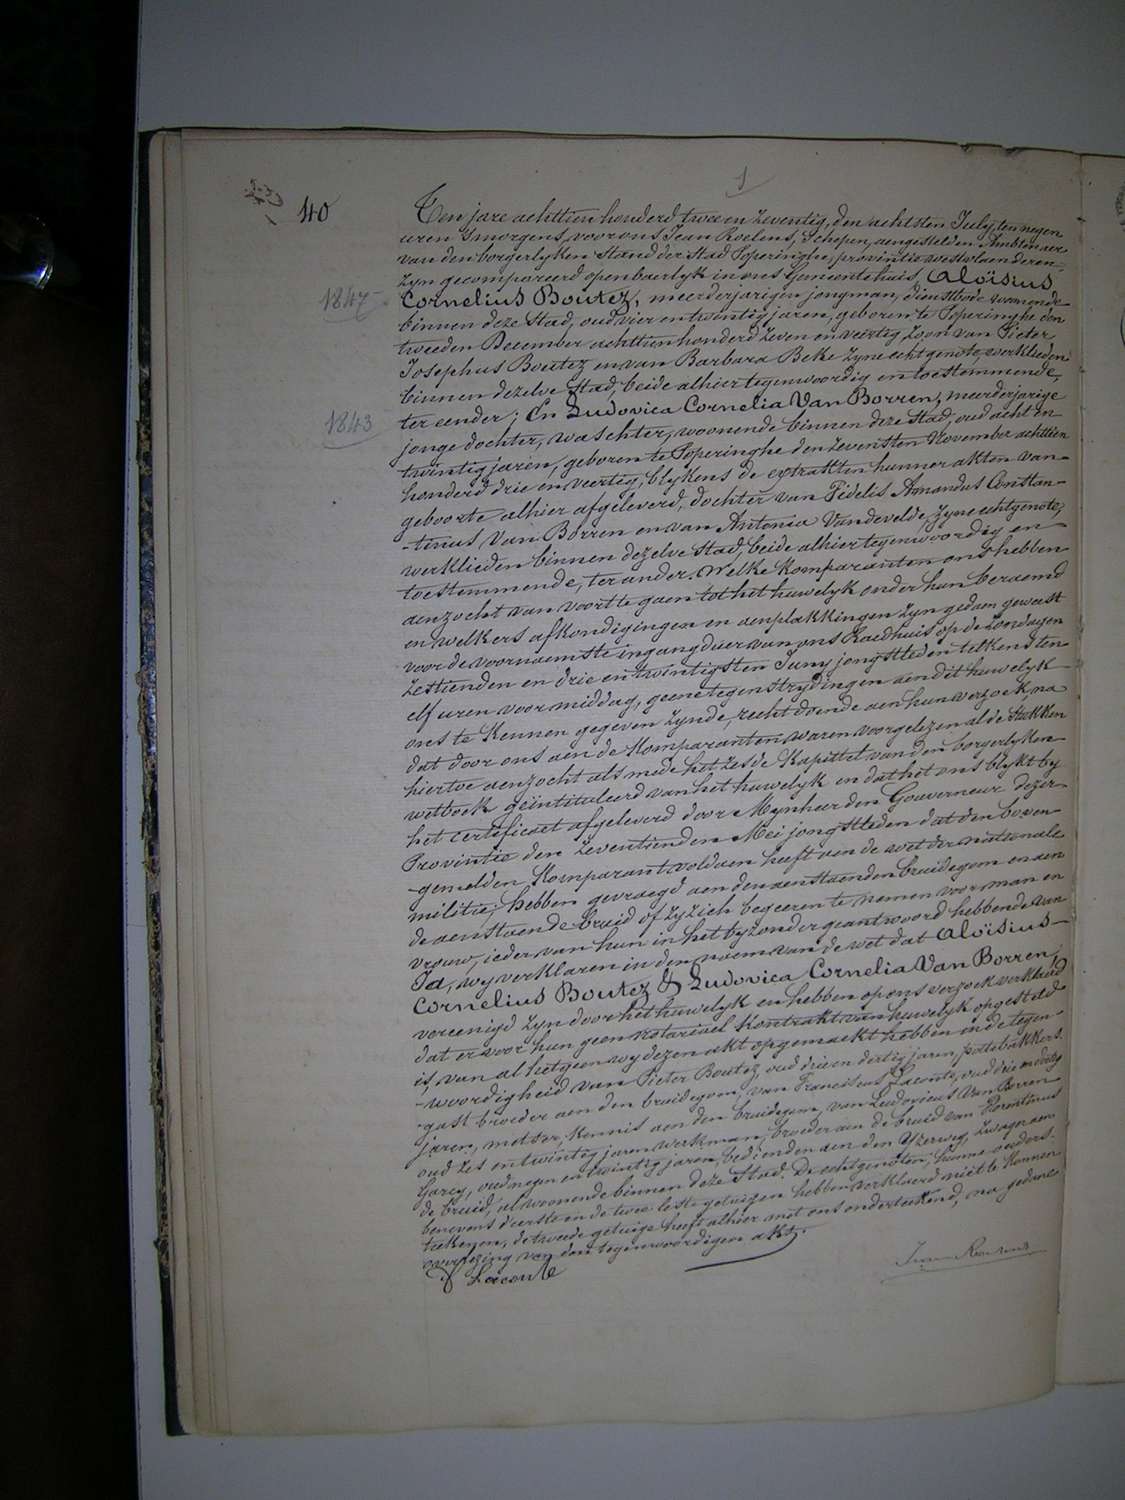 1
40
Ten jare achttien honderd twee en zeventig, den achtsten July, ten negen
uren 's morgens, voor ons Jean Roelens, Schepen, aengestelden Ambtenaer
van den borgerlyken Stand der Stad Poperinghe, provintie westvlaenderen,
zyn gecompareerd openbaerlyk in ons Gemeentehuis, Aloïsius
1847
Cornelius Boutez, meerderjarigen jongman, dienstbode woonende
binnen deze Stad, oud vier en twintig jaren, geboren te Poperinghe den
tweeden December achttien honderd zeven en veertig, zoon van Pieter
Josephus Boutez en van Barbara Beke zyne echtgenote, werklieden
binnen dezelve Stad, beide alhier tegenwoordig en toestemmende,
ter eender; En Ludovica Cornelia Van Borren, meerderjarige
1843
jonge dochter, waschter, woonende binnen deze Stad, oud acht en
twintig jaren, geboren te Poperinghe den zevensten November achttien
honderd drie en veertig, blykens de extrakten hunner akten van
geboorte alhier afgeleverd, dochter van Fidelis Amandus Constan-
-tinus Van Borren en van Antonia Vandevelde, zyne echtgenote,
werklieden binnen dezelve Stad, beide alhier tegenwoordig en
toestemmende, ter ander. Welke Komparanten ons hebben
aenzocht van voort te gaen tot het huwelyk onder hun beraemd
en welkers afkondigingen en aenplakkingen zyn gedaen geweest
voor de voornaemste ingangduer van ons Raedhuis op de zondagen
zestienden en drie en twintigsten Juny jongstleden telkens ten
elf uren voormiddag, geene tegenstrydingen aen dit huwelyk
ons te Kennen gegeven zynde, recht doende aen hun verzoek na
dat door ons aen de Komparanten waren voorgelezen al de Stukken
hiertoe aenzocht als mede het zesde Kapittel van den borgerlyken
wetboek geïntituleerd van het huwelyk en dat het ons blykt by
het certificaet afgeleverd door Mynheer den Gouverneur dezer
Provintie den zeventienden Mei jongstleden dat den boven-
-gemelden Komparant voldaen heeft aen de wet der nationale
militie; hebben gevraegd aen den aenstaenden bruidegom en aen
de aenstaende bruid of zy zich begeeren te nemen voor man en
vrouw, ieder van hun in het byzonder geantwoord hebbende van
Ja, wy verklaren in den naem van de wet dat Aloïsius
Cornelius Boutez & Ludovica Cornelia Van Borren,
vereenigd zyn door het huwelyk en hebben op ons verzoek verklaerd
dat er voor hun geen notariael Kontrakt van huwelyk opgesteld
is, van al hetgeen wy dezen akt opgemaekt hebben in de tegen-
-woordigheid van Pieter Boutez, oud drie en dertig jaren, patebakkers
-gast broeder aen den bruidegom, van Franciscus Laconte, oud drie en dertig
jaren, metser, kennis aen den bruidegom, van Ludovicus Van Borren
oud zes en twintig jaren werkman, broeder aen de bruid van Florentinus
oud negen en twintig jaren, bedienden aen den Yzerweg, zwager aen
de bruid, al woonende binnen deze Stad. De echtgenoten, hunne ouders
benevens d'eerste en de twee leste getuigen hebben verklaerd niet te konnen
teekenen, de tweede getuige heeft alhier met ons onderteekend, na gedane
voorlezing van den tegenwoordigen akt.
F Laconte
Jean Roelens